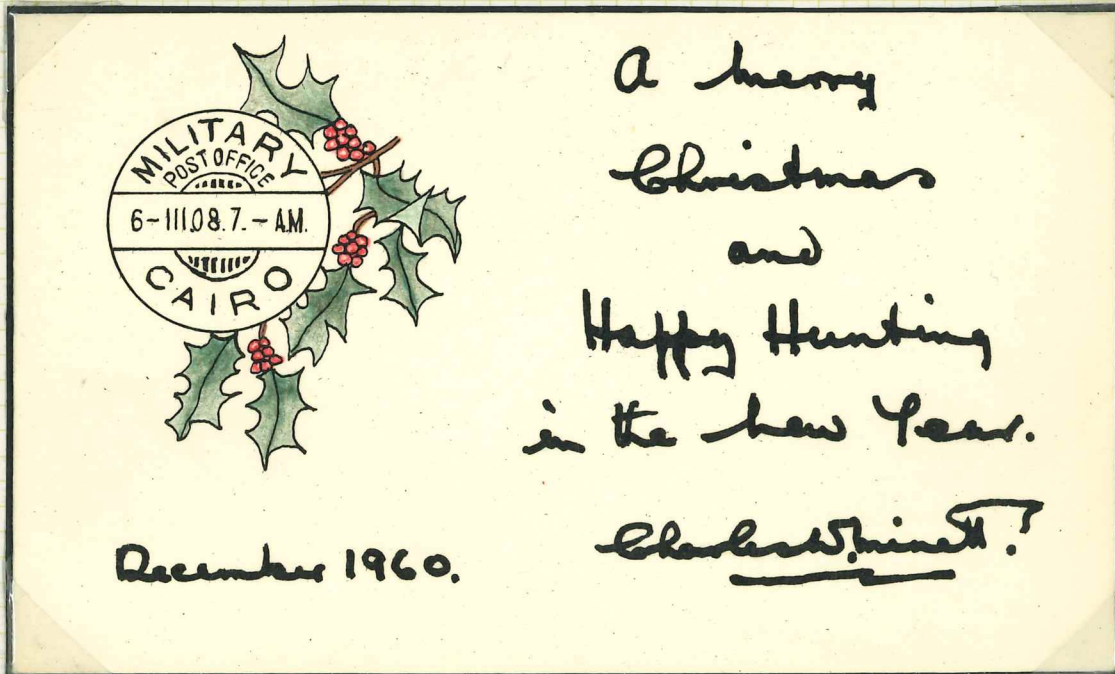 MILITARY
POST OFFICE
6-III.08.7.-AM.
CAIRO
A merry
Christmas
and
Happy Hunting
in the new Year.
Charles W. Minett.
December 1960.